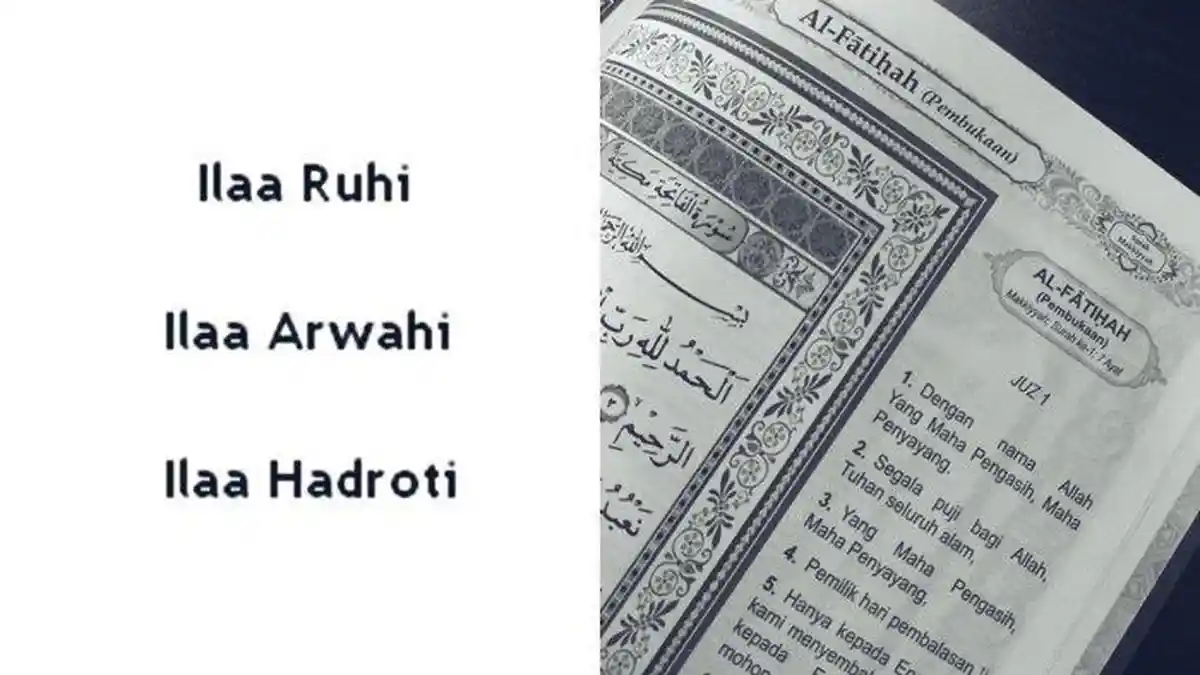 Ilaa Ruhi
Ilaa Arwahi
Ilaa Hadroti
Al-Fātiḥah (Pembukaan)
سُوْرَةُ الْفَاتِحَةِ مَكِّيَّةٌ
بِسْـــمِ اللّٰهِ الرَّحْمٰنِ
اَلْحَمْدُ لِلّٰهِ رَبِّ
الرَّحِيْمِ ۙ ٣
نَعْبُدُ
Surah Makkiyyah
AL-FĀTIḤAH
(Pembukaan)
Makkiyyah, Surah ke-1: 7 Ayat
JUZ 1
1. Dengan nama Allah
Yang Maha Pengasih, Maha
Penyayang.
2. Segala puji bagi Allah,
Tuhan seluruh alam,
3. Yang Maha Pengasih,
Maha Penyayang,
4. Pemilik hari pembalasan
5. Hanya kepada
kami
kepada